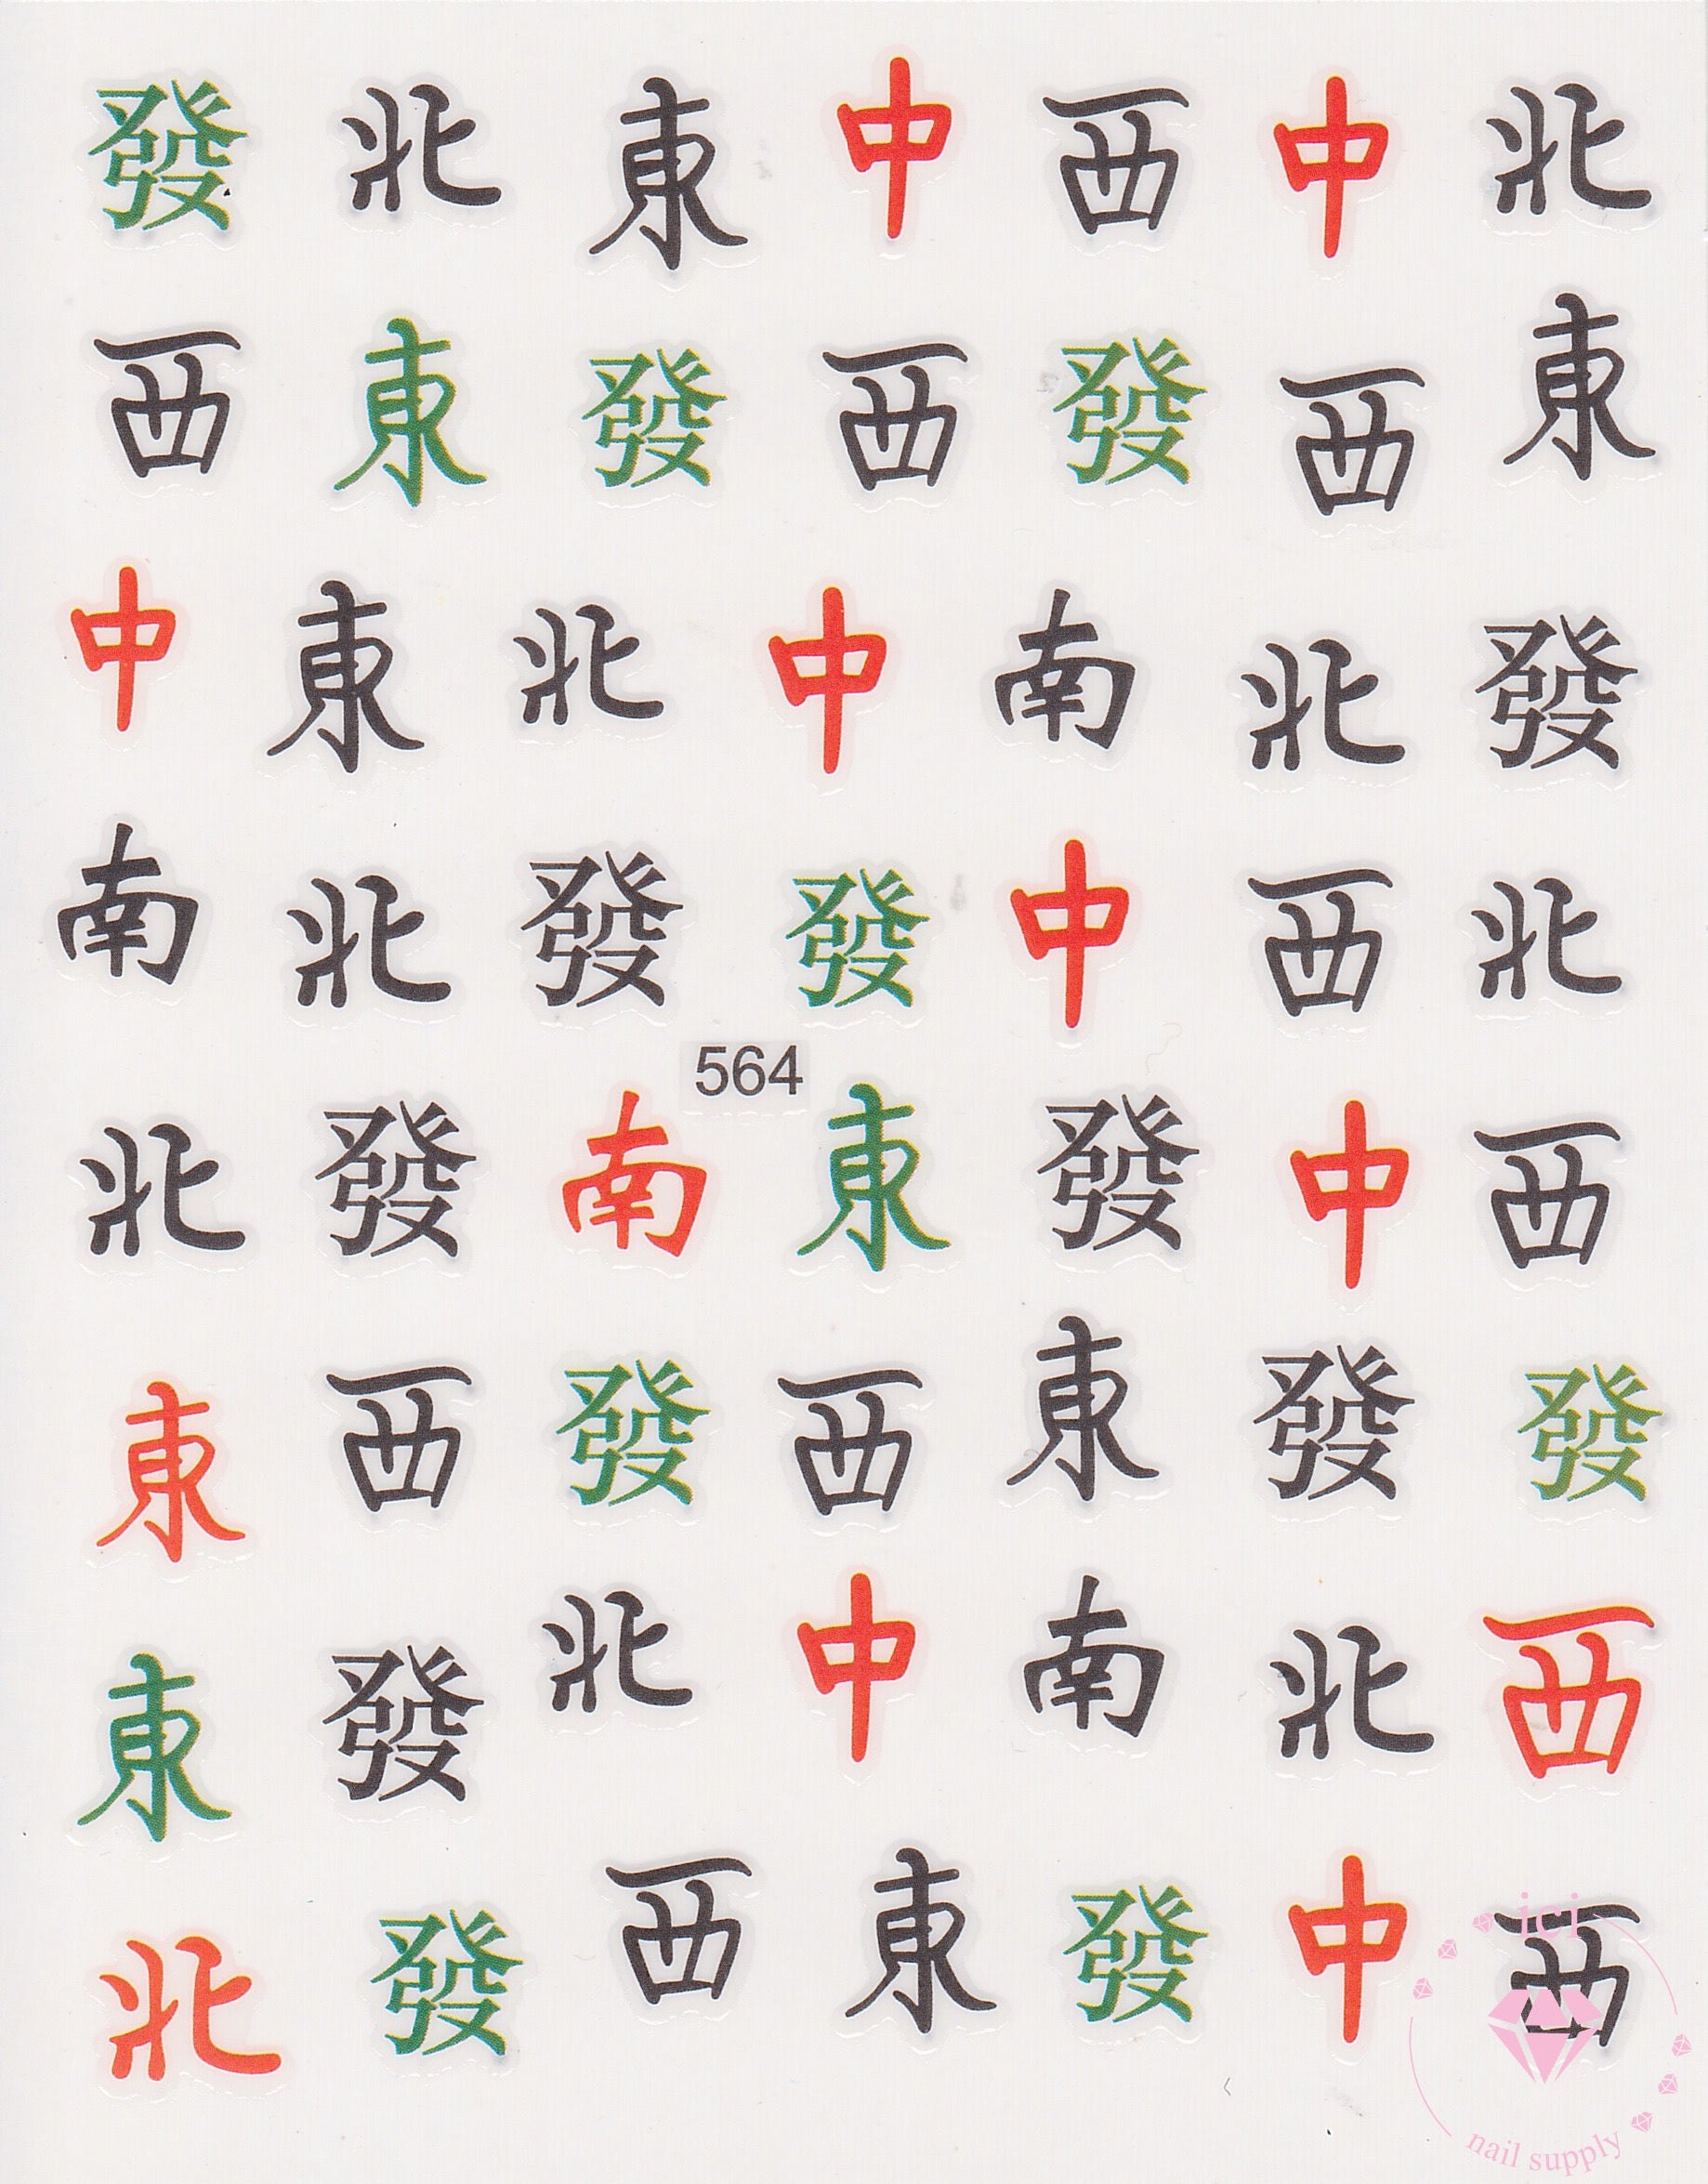 發北東中西中北
西東發西發西東
中東北中南北發
南北發發中西北
564
北發南東發中西
東西發西東發發
東發北中南北西
北發西東發中西
ici
nail supply